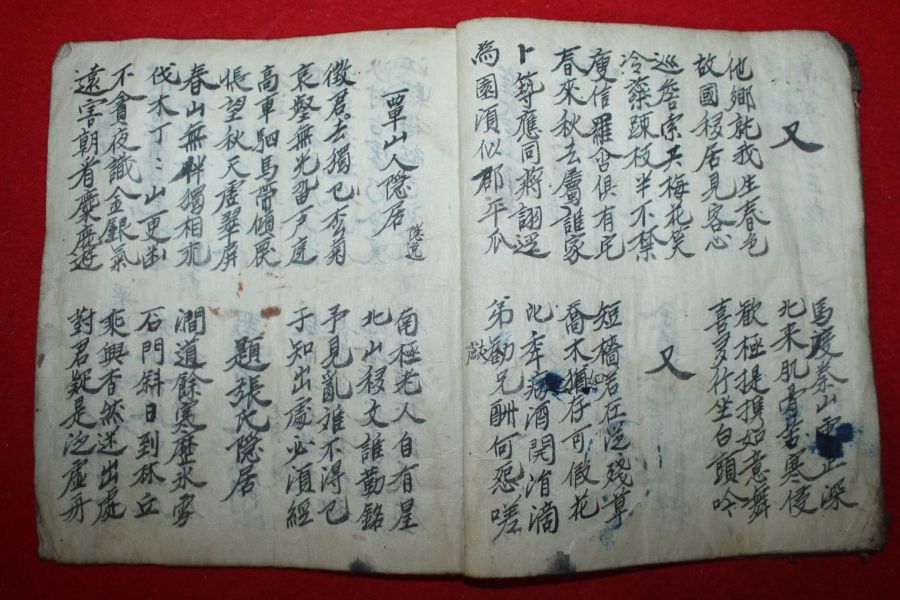 又
馬度秦山雪正深
北来肌骨苦寒侵
他鄉就我生春色
故國移居見客心
歡極提携如意舞
喜多行坐白頭吟
巡簷索共梅花笑
冷蘂疎枝半不禁
又
庾信羅含俱有宅
春來秋去屬誰家
短墻若在從殘草
喬木猶存可假花
卜築應同蔣詡逕
為園須似郡平瓜
比年病酒開涓滴
弟勸兄酬何怨嗟
覃山人隱居 隱逸
南極老人自有星
北山移文誰勒銘
徵君去獨已松菊
哀壑無光留戶庭
予見亂誰不得已
子知出處必須經
高車駟馬帶傾覆
悵望秋天虛翠屏
題張氏隱居
春山無伴獨相求
伐木丁丁山更幽
澗道餘寒歷氷雪
石門斜日到林丘
不貪夜識金銀氣
遠害朝看麋鹿遊
乘興杳然迷出處
對君疑是泛虛舟